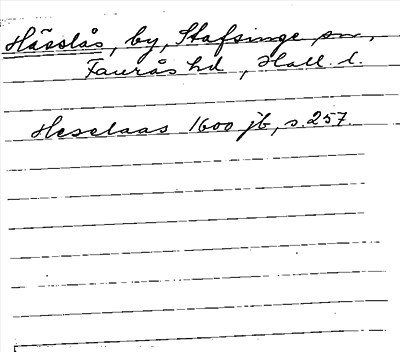 Hässlås, by, Stafsinge sn,
Faurås hd, Hall. l.
Heselaas 1600 jb, s. 257.